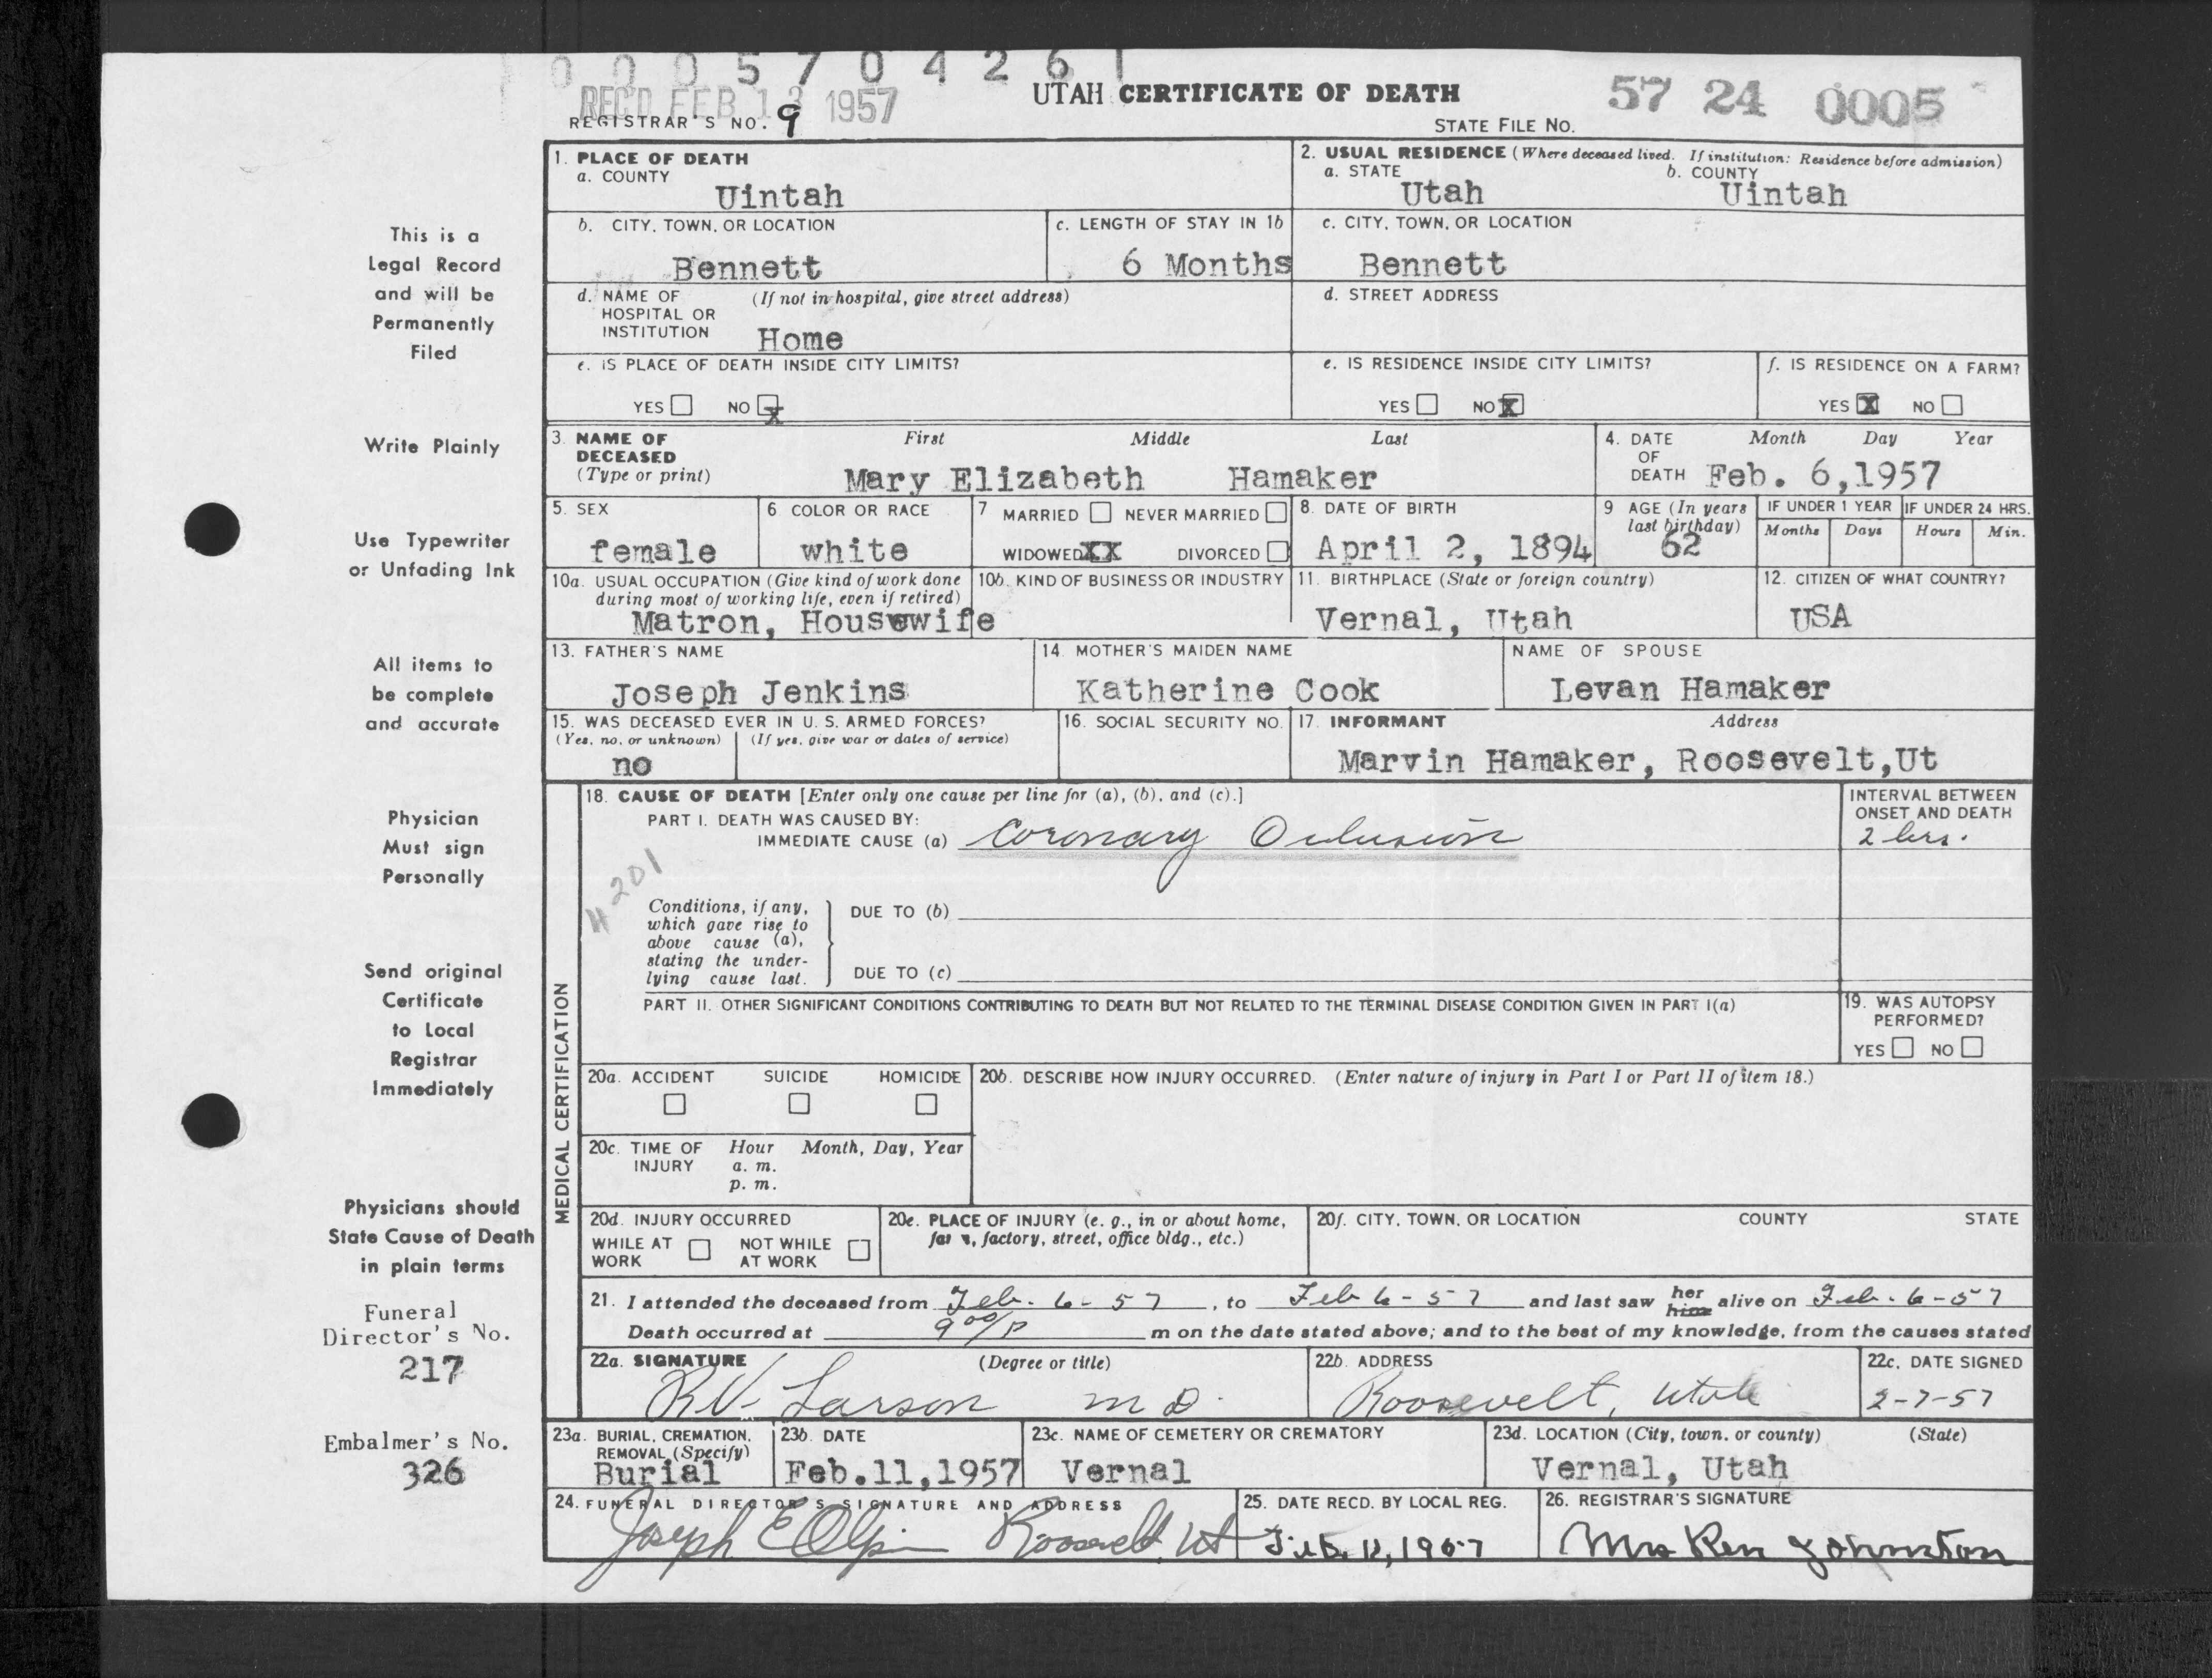 0 0 0 5 7 0 4 2 6 1
REC'D FEB 13 1957
UTAH CERTIFICATE OF DEATH
57 24 0005
REGISTRAR'S NO. 9
STATE FILE NO.
1. PLACE OF DEATH
a. COUNTY
Uintah
2. USUAL RESIDENCE (Where deceased lived. If institution: Residence before admission)
a. STATE b. COUNTY
Utah Uintah
b. CITY, TOWN, OR LOCATION
Bennett
c. LENGTH OF STAY IN 1b
6 Months
c. CITY, TOWN, OR LOCATION
Bennett
d. NAME OF (If not in hospital, give street address)
HOSPITAL OR
INSTITUTION Home
d. STREET ADDRESS
e. IS PLACE OF DEATH INSIDE CITY LIMITS?
YES NO X
e. IS RESIDENCE INSIDE CITY LIMITS?
YES NO X
f. IS RESIDENCE ON A FARM?
YES X NO
3. NAME OF DECEASED (Type or print)
First Middle Last
Mary Elizabeth Hamaker
4. DATE OF DEATH
Month Day Year
Feb. 6,1957
5. SEX
female
6. COLOR OR RACE
white
7 MARRIED NEVER MARRIED
WIDOWED XX DIVORCED
8. DATE OF BIRTH
April 2, 1894
9 AGE (In years last birthday)
62
IF UNDER 1 YEAR
Months Days
IF UNDER 24 HRS.
Hours Min.
10a. USUAL OCCUPATION (Give kind of work done
during most of working life, even if retired)
Matron, Houswwife
10b. KIND OF BUSINESS OR INDUSTRY
11. BIRTHPLACE (State or foreign country)
Vernal, Utah
12. CITIZEN OF WHAT COUNTRY?
USA
13. FATHER'S NAME
Joseph Jenkins
14. MOTHER'S MAIDEN NAME
Katherine Cook
NAME OF SPOUSE
Levan Hamaker
15. WAS DECEASED EVER IN U. S. ARMED FORCES?
(Yes, no, or unknown) (If yes, give war or dates of service)
no
16. SOCIAL SECURITY NO.
17. INFORMANT Address
Marvin Hamaker, Roosevelt,Ut
MEDICAL CERTIFICATION
18. CAUSE OF DEATH [Enter only one cause per line for (a), (b), and (c).]
PART I. DEATH WAS CAUSED BY:
IMMEDIATE CAUSE (a) Coronary Oclusion
INTERVAL BETWEEN
ONSET AND DEATH
2 hrs.
4201
Conditions, if any,
which gave rise to
above cause (a),
stating the under-
lying cause last.
DUE TO (b)
DUE TO (c)
PART II. OTHER SIGNIFICANT CONDITIONS CONTRIBUTING TO DEATH BUT NOT RELATED TO THE TERMINAL DISEASE CONDITION GIVEN IN PART I(a)
19. WAS AUTOPSY
PERFORMED?
YES NO
20a. ACCIDENT SUICIDE HOMICIDE
20b. DESCRIBE HOW INJURY OCCURRED. (Enter nature of injury in Part I or Part II of item 18.)
20c. TIME OF INJURY
Hour Month, Day, Year
a. m.
p. m.
20d. INJURY OCCURRED
WHILE AT WORK NOT WHILE AT WORK
20e. PLACE OF INJURY (e. g., in or about home,
factory, street, office bldg., etc.)
20f. CITY, TOWN, OR LOCATION COUNTY STATE
21. I attended the deceased from Feb. 6 - 57, to Feb 6 - 57 and last saw her him alive on Feb. 6 - 57
Death occurred at 9 00/P m on the date stated above; and to the best of my knowledge, from the causes stated
22a. SIGNATURE (Degree or title)
R.V. Larson M D.
22b. ADDRESS
Roosevelt, Utah
22c. DATE SIGNED
2-7-57
23a. BURIAL, CREMATION,
REMOVAL (Specify)
Burial
23b. DATE
Feb.11,1957
23c. NAME OF CEMETERY OR CREMATORY
Vernal
23d. LOCATION (City, town, or county) (State)
Vernal, Utah
24. FUNERAL DIRECTOR'S SIGNATURE AND ADDRESS
Joseph E Olpin Roosevelt, Ut
25. DATE RECD. BY LOCAL REG.
Feb. 11, 1957
26. REGISTRAR'S SIGNATURE
Mrs Ren Johnston
This is a
Legal Record
and will be
Permanently
Filed
Write Plainly
Use Typewriter
or Unfading Ink
All items to
be complete
and accurate
Physician
Must sign
Personally
Send original
Certificate
to Local
Registrar
Immediately
Physicians should
State Cause of Death
in plain terms
Funeral
Director's No.
217
Embalmer's No.
326